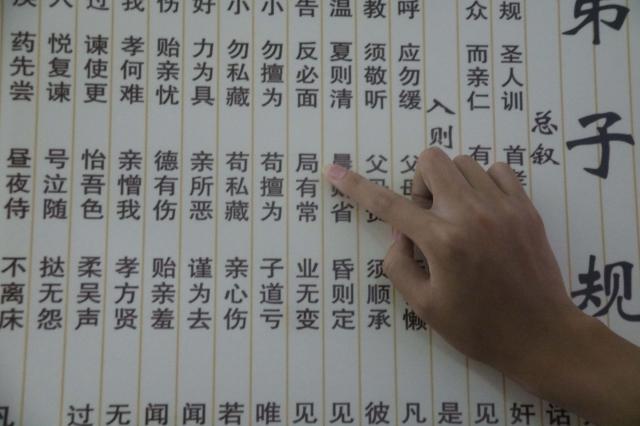 弟子规
总叙
话
规 圣人训 首孝 奸
众 而亲仁 有 见
入则
是
呼 应勿缓 父母 懒 凡
教 须敬听 父母责 须顺承 彼
温 夏则清 晨则省 昏则定 见
告 反必面 局有常 业无变 见
小 勿擅为 苟擅为 子道亏 唯
小 勿私藏 苟私藏 亲心伤 若
好 力为具 亲所恶 谨为去 闻
伤 贻亲忧 德有伤 贻亲羞 闻
我 孝何难 亲憎我 孝方贤 无
过 谏使更 怡吾色 柔吴声 过
人 悦复谏 号泣随 挞无怨
药先尝 昼夜侍 不离床 凡